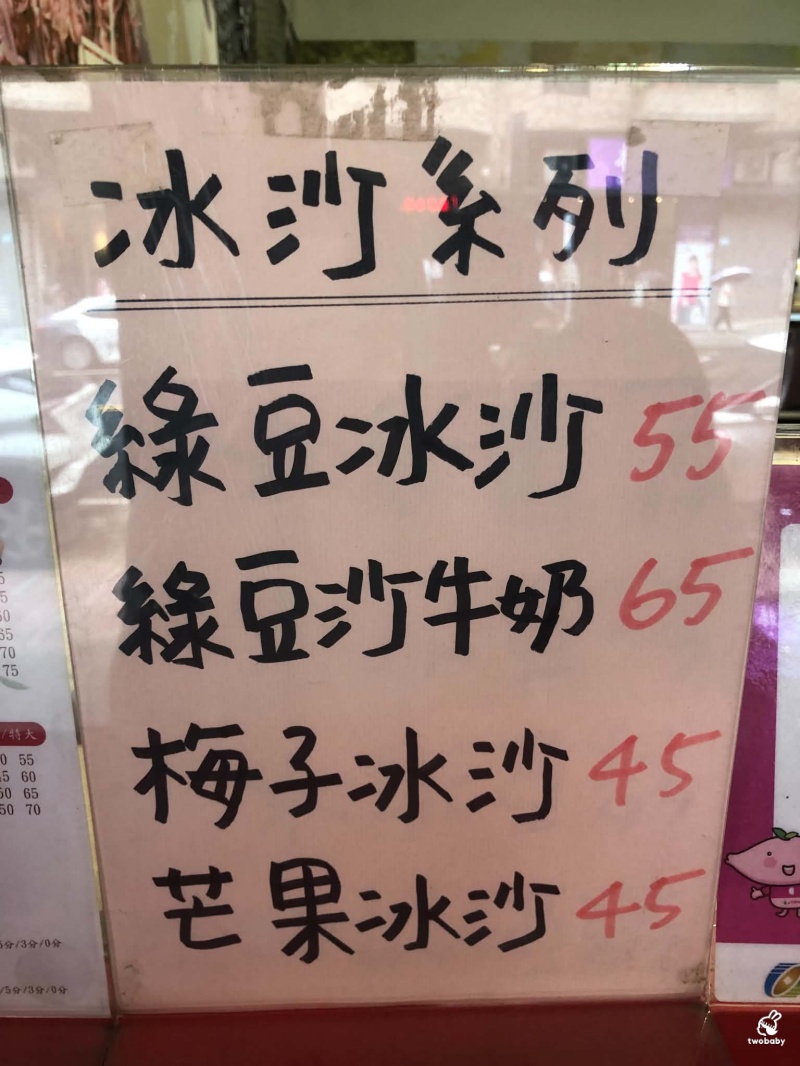 冰沙系列
綠豆冰沙 55
綠豆沙牛奶 65
梅子冰沙 45
芒果冰沙 45
65
70
75
/特大
0 55
45 60
50 65
50 70
分/3分/0分
/5分/3分/0分
twobaby